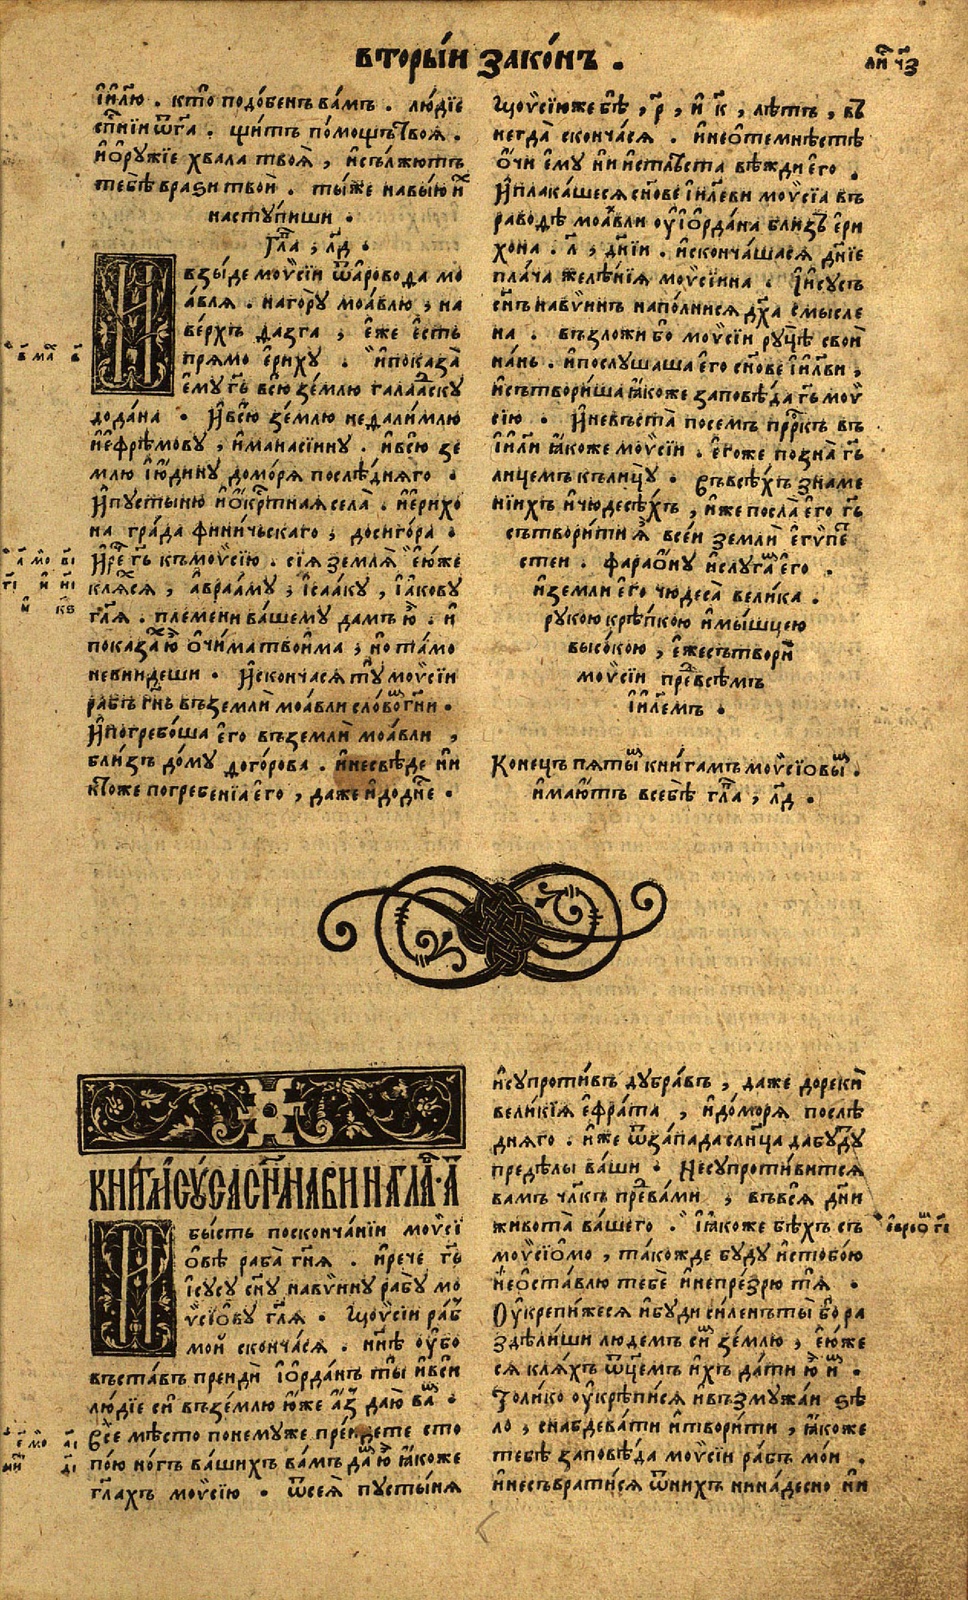 вторы́и зако́нъ .
ли҃ ч҃з
і҆и҃лю . кт̾о подо́бенъ ва́мъ . лю́дїе
сп҃нїи ѿ га҃ . щи́тъ по́мощъ твоѧ .
и҆ ѻ҆ру́жїе хвала твоѧ̀ , и҆ сължю́тъ
тебѣ̀ врази твоѝ . ты́же на вы́ю и҆х
насту́пиши .
гл҃а , л҃д .
взы́де моѷсїи ѿ аровода мо
а́влѧ . на го́ру моа́влю , на
ве́рхъ ѳазга , е҆́же е҆́сть
прѧмо е҆риху . и҆ показа̀
е҆му̀ гь҃ всю̀ зе́млю галаадску
до да́на . И҆ всю̀ зе́млю неѳали́млю
и҆ е҆фре́мову , и҆ манасїину . и҆ всю̀ зе
млю і҆ю́дину до мо́рѧ послѣ́днѧго .
И҆ пусты́ню и҆ ѻ҆кр́тнаѧ села̀ . и҆ е҆рихо
на гра́да фини́чьскаго , до сиго́ра .
И҆ ре҃ гь҃ къ моѷсїю . сїѧ землѧ̀ е҆ю́же
клѧ́сѧ , а҆враа́му , і҆саа́ку , і҆а́кову
гл҃ѧ . пле́мени ва́шему дамъ ю҆̀ . и҆
показа́х ю҆̀ ѻ҆чи́ма твои́ма , но та́мо
не вни́деши . И҆ скончасѧ ту̀ моѷсїи
рабъ гн҃ь въ землѝ моа́вли сло́вом гн҃и .
И҆ погребо́ша е҆го̀ въ землѝ моа́вли ,
бли́зъ до́му ѳого́рова . и҆ не свѣ́де ни
кт̾оже погребенїа е҆го̀ , даже и҆ до дн҃е .
Моѷсїи же бѣ̀ , р҃ , и҆ к҃ , лѣтъ , въ
негда̀ сконча́сѧ . и҆ не ѻ҆темнѣстѣ
ѻ҆́чи е҆му̀ ни и҆стлѣста вѣжди е҆го .
И҆ плака́шесѧ сн҃ове і҆и҃леви моѷсїа въ
раво́дѣ моа́вли оу҆ і҆ѻ҆рда́на бли́зъ е҆ри
хона . л҃ , дн҃їи . и҆ сконча́шасѧ дн҃їе
пла́ча желѣ́нїѧ моѷсїина . І҆исусъ
сн҃ъ навѵинъ напо́лнисѧ дх҃а смысле
на . възложи́ бо моѷсїи ру́цѣ свои
на́нь . и҆ послушаша е҆го̀ сн҃ове і҆и҃лви ,
и҆ сътвори́ша ꙗ҆́коже заповѣ́да гь҃ моѷ
сїю . И҆ не въста̀ посемъ прр҃къ въ
і҆и҃ли ꙗ҆́коже моѷсїи . е҆гоже позна̀ гь҃
лицемъ къ лицу̀ . Въ всѣ́хъ зна́ме
нїихъ и҆ чюдесѣ́хъ , и҆́же посла̀ е҆го̀ гь҃
сътвори́ти ѧ҆̀ все́и землѝ е҆гѵ́пе
стеи . фараѻ҆́ну и҆ слуга́м е҆го̀ .
и҆ земли е҆го̀ чюдеса̀ вели́ка .
рукою крѣ́пкою и҆ мы́шцею
высо́кою , е҆́же сътворѝ
моѷсїи пред всѣмъ
і҆и҃лемъ .
Конецъ пѧты́м кни́гамъ моѷсїовы́м .
и҆ма́ютъ в себѣ̀ гл҃а , л҃д .
КНИ́ГА І҆ИСУ́СА СН҃А НАВИНА ГЛА҃ . А҃
бы́сть по сконча́нїи моѷсї
ѻ҆вѣ раба̀ гн҃ѧ . и҆ рече гь҃
і҆сусу сн҃у навѵину рабу мо
ѷсїо́ву гл҃ѧ . Моѷсїи раб
мои сконча́сѧ . нн҃ѣ оу҆́бо
въста́въ преидѝ і҆ѻрда́нъ ты̀ и҆ всѝ
лю́дїе сѝ въ зе́млю ю҆́же а҆́з даю̀ ва́м .
Все мѣ́сто по немуже пре́идете сто
по́ю но́гъ ва́шихъ ва́мъ да́м ю҆̀ ꙗ҆́коже
гл҃ахъ моѷсїю . ѿ сеѧ̀ пусты́нѧ
и҆ супроти́въ дубра́въ , даже до рекѝ
вели́кїѧ е҆фра́та , и҆ до мо́рѧ послѣ
днѧго . и҆́же ѿ за́пада слн҃ца да бу́ду
предѣ́лы ва́ши . Не супроти́витсѧ
ва́мъ чл҃къ пред ва́ми , въ всѧ̀ дн҃и
живота̀ ва́шего . ꙗ҆́коже бѣ́хъ съ
моѷсїо́мо , та́кожде бу́ду и҆ с тобо́ю
и҆ не ѻ҆ста́влю тебѐ и҆ не пре́зрю тѧ̀ .
Оу҆крепи́жесѧ и҆ бу́ди си́ленъ ты̀ бо ра
здѣли́ши лю́демъ сїю̀ зе́млю , е҆ю́же
сѧ клѧ́хъ ѿц҃емъ и҆́хъ да́ти ю҆̀ и҆́м .
Толи́ко оу҆крѣпи́сѧ и҆ възмужа́и ѕѣ
ло̀ , снабдева́ти и҆ твори́ти , ꙗ҆́коже
тебѣ̀ заповѣ́да моѷсїи ра́бъ мо́и .
и҆ не съврати́сѧ ѿ ни́хъ ни на́десно ни